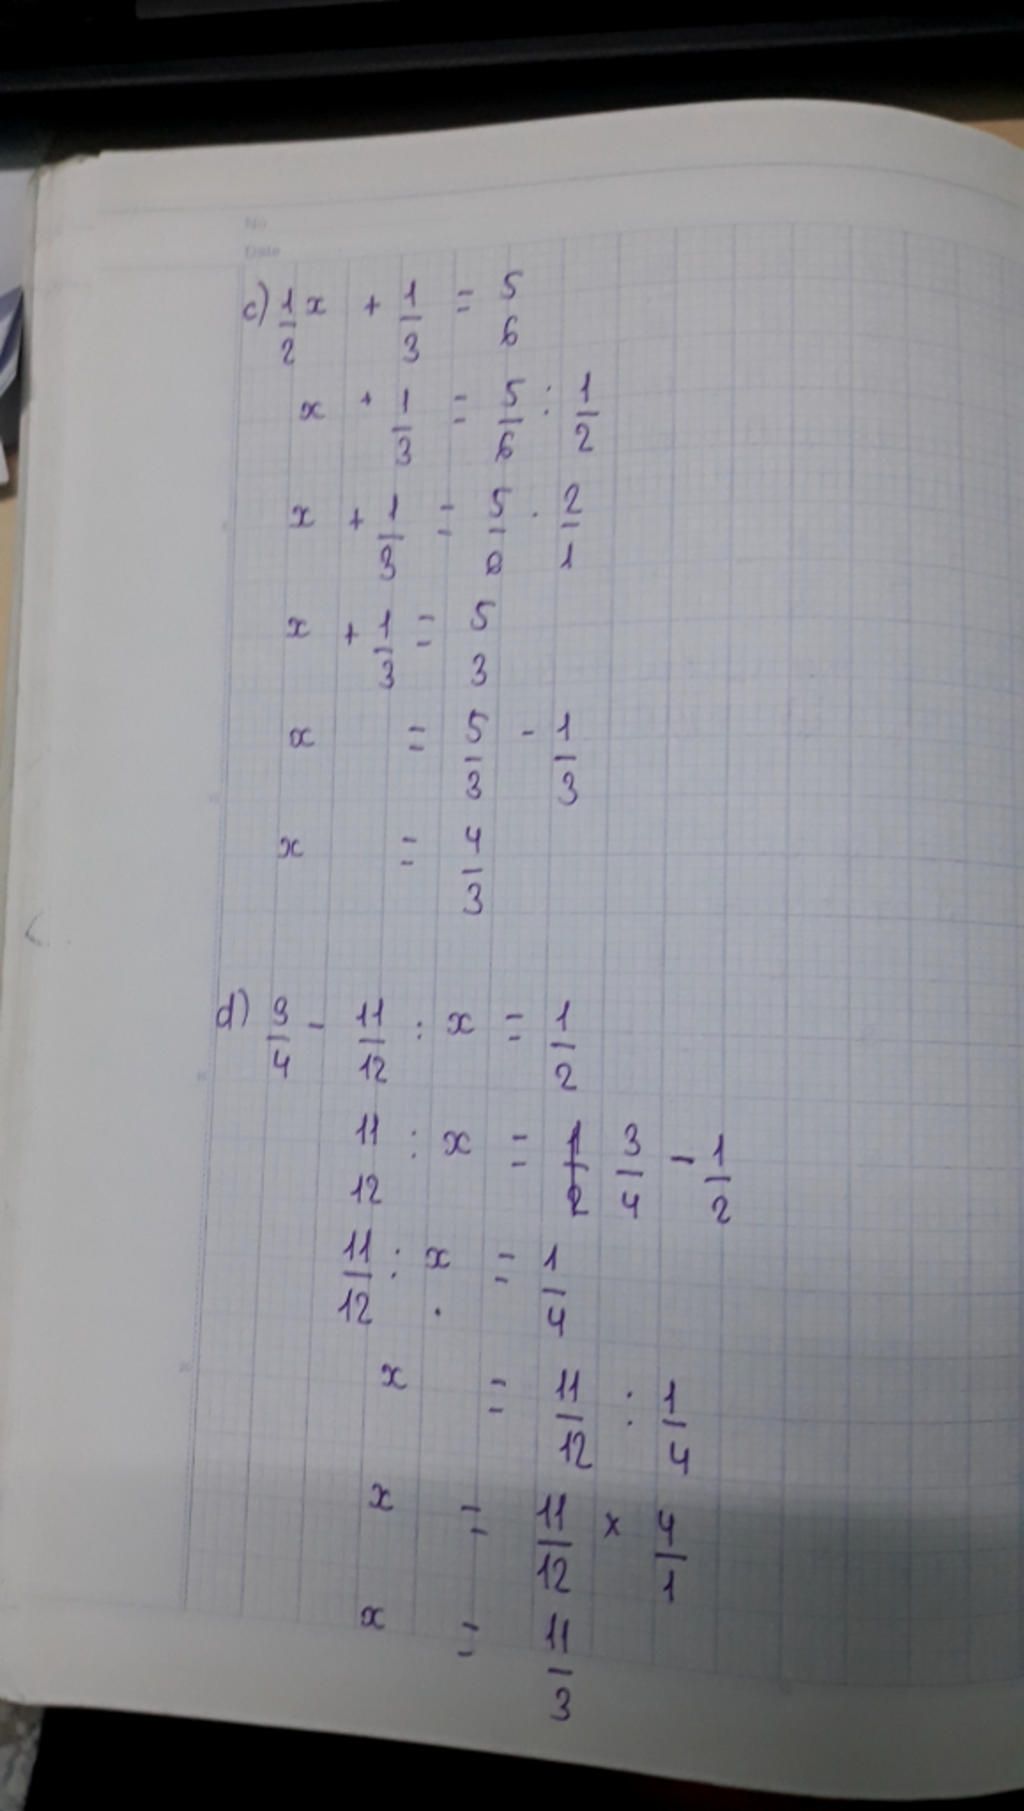 No
Date
c) 1/2 x + 1/3 = 5/6
x + 1/3 = 5/6 : 1/2
x + 1/3 = 5/6 . 2/1
x + 1/3 = 5/3
x = 5/3 - 1/3
x = 4/3
d) 3/4 - 11/12 : x = 1/2
11/12 : x = 3/4 - 1/2
11/12 : x = 1/4
x = 11/12 : 1/4
x = 11/12 x 4/1
x = 11/3